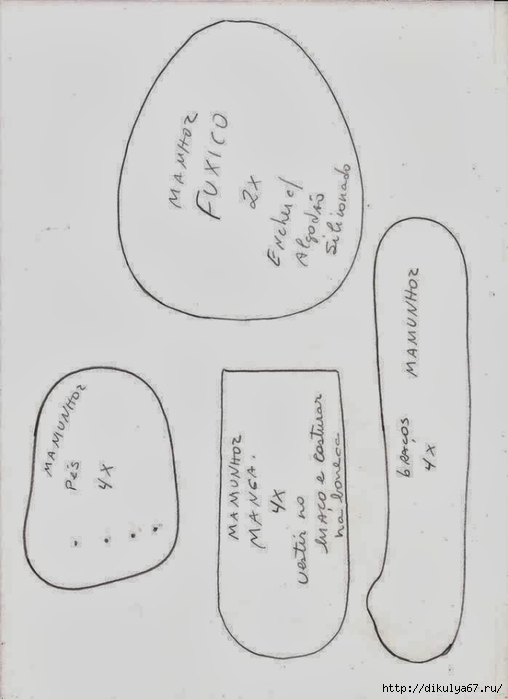 MAMHOZ
FUXICO
2X
Encher c/
Algodão
Siliconado
MAMUNHOZ
braços
4X
MAMUNHOZ
Pés
4X
MAMUNHOZ
MANGA.
4X
vestir no
braço e costurar
na boneca
http://dikulya67.ru/